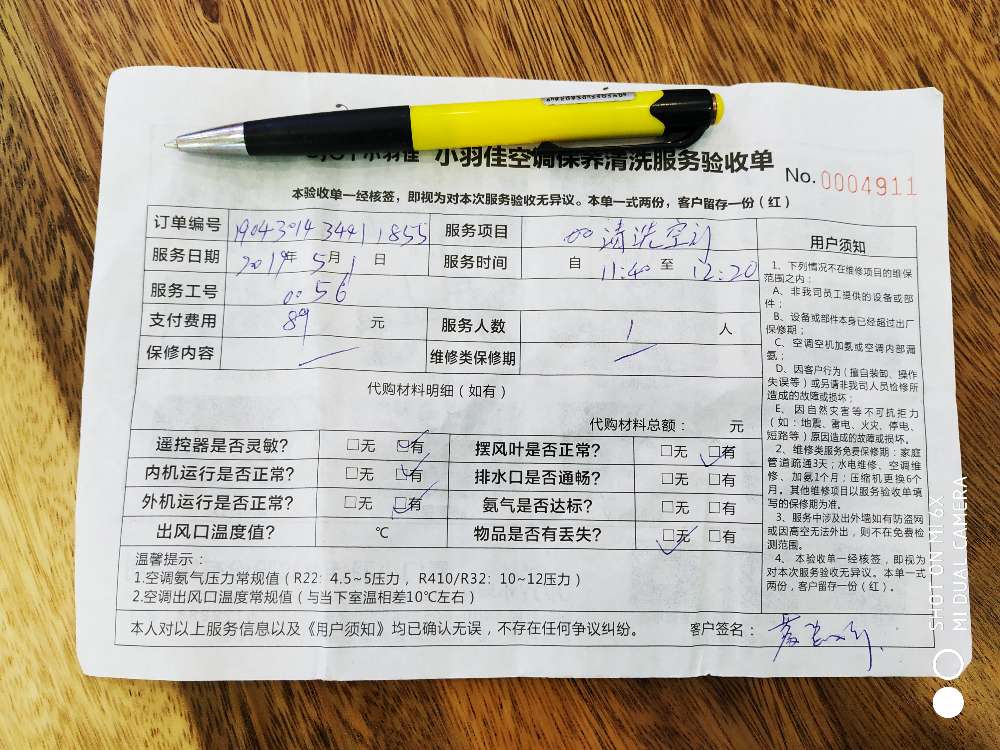 小羽佳 小羽佳空调保养清洗服务验收单
No. 0004911
本验收单一经核签，即视为对本次服务验收无异议。本单一式两份，客户留存一份（红）
订单编号 190430143441 1855 服务项目 清洗空
服务日期 2019年 5月 1日 服务时间 自 11:40 至 12:20
服务工号 0056
支付费用 89 元 服务人数 1 人
保修内容 维修类保修期
代购材料明细（如有）
代购材料总额： 元
遥控器是否灵敏？ □无 □有 摆风叶是否正常？ □无 □有
内机运行是否正常？ □无 □有 排水口是否通畅？ □无 □有
外机运行是否正常？ □无 □有 氨气是否达标？ □无 □有
出风口温度值？ ℃ 物品是否有丢失？ □无 □有
温馨提示：
1.空调氨气压力常规值（R22: 4.5~5压力， R410/R32: 10~12压力）
2.空调出风口温度常规值（与当下室温相差10℃左右）
本人对以上服务信息以及《用户须知》均已确认无误，不存在任何争议纠纷。 客户签名：
用户须知
1、下列情况不在维修项目的维保
范围之内：
A、非我司员工提供的设备或部
件；
B、设备或部件本身已经超过出厂
保修期；
C、空调空机加氨或空调内部漏
氨；
D、因客户行为（擅自装卸、操作
失误等）或另请非我司人员检修所
造成的故障或损坏；
E、因自然灾害等不可抗拒力
（如：地震、雷电、火灾、停电、
短路等）原因造成的故障或损坏。
2、维修类服务免费保修期：家庭
管道疏通3天；水电维修、空调维
修、加氨1个月；压缩机更换6个
月。其他维修项目以服务验收单填
写的保修期为准。
3、服务中涉及出外墙如有防盗网
或因高空无法外出，则不在免费检
测范围。
4、本验收单一经核签，即视为
对本次服务验收无异议。本单一式
两份，客户留存一份（红）。
SHOT ON MI 6X
MI DUAL CAMERA